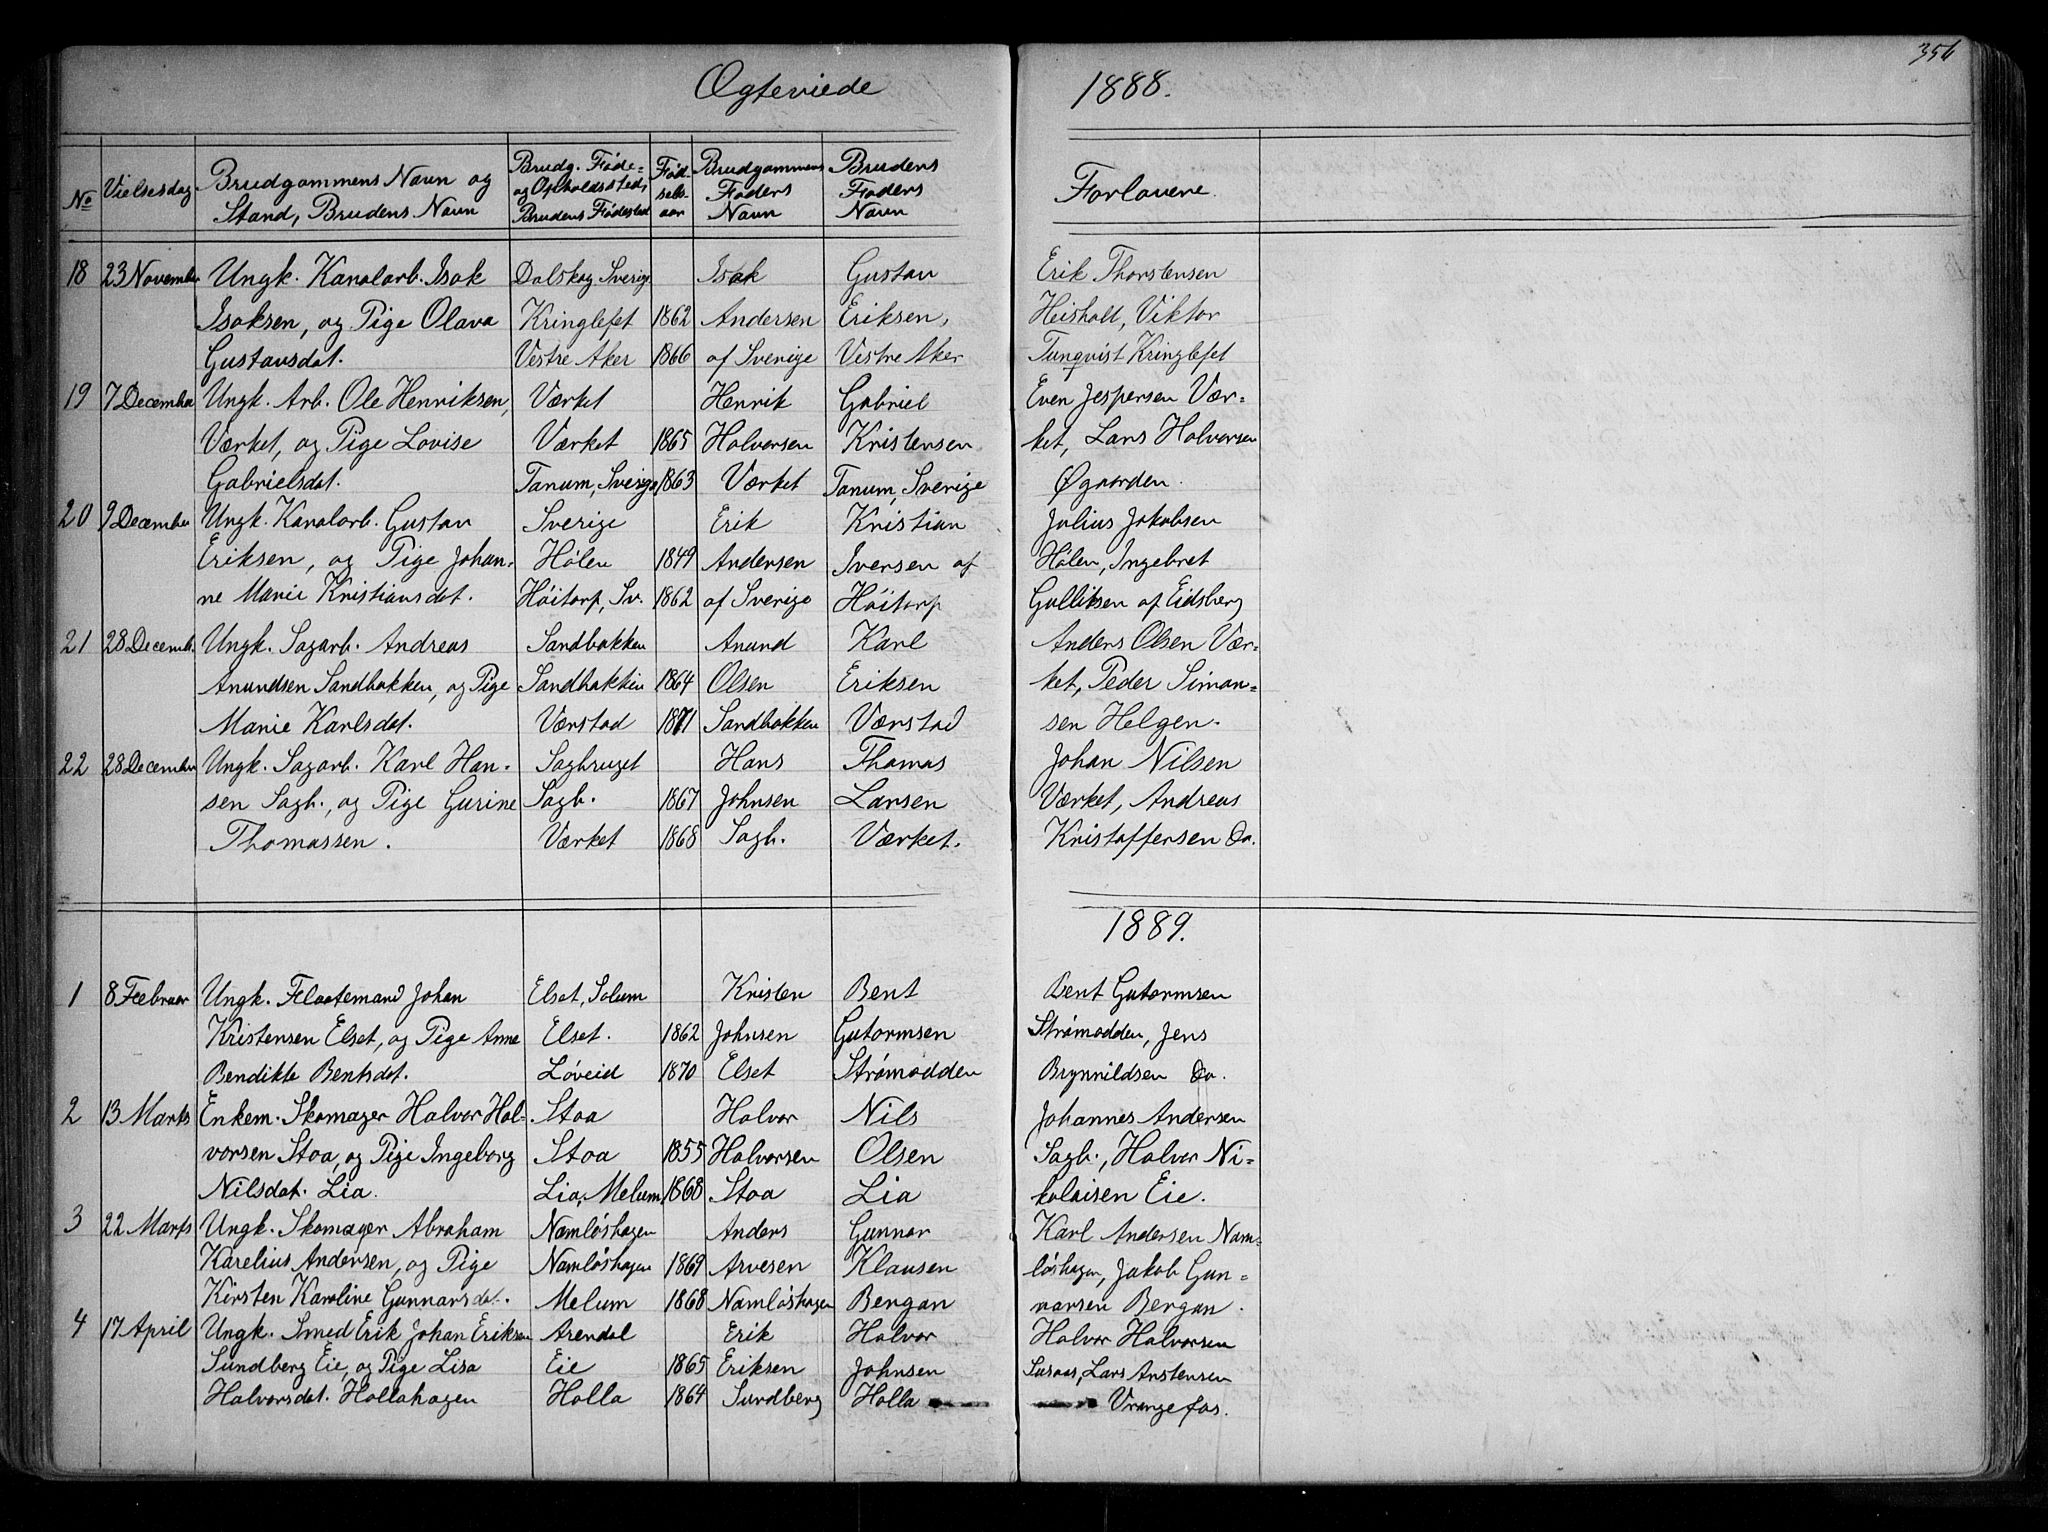 356
Ægteviede 1888.
No Vielsesdag Brudgommens Navn og Stand, Brudens Navn Brudg. Føde- og Opholdssted, Brudens Fødested Fødselsaar Brudgommens Faders Navn Brudens Faders Navn Forlovere.
18 23 November Ungk. Kanalarb. Isak Dalskog Sverige Isak Gustav Erik Thorstensen
Isaksen, og Pige Olava Kringlefet 1862 Andersen Eriksen, Heisholt, Viktor
Gustavsdat. Vestre Aker 1866 af Sverige Vestre Aker Tunqvist Kringlefet
19 7 December Ungk. Arb. Ole Henriksen, Værket Henrik Gabriel Even Jespersen Vær-
Værket, og Pige Lovise Værket 1865 Halvorsen Kristensen ket, Lars Halvorsen
Gabrielsdat. Tanum, Sverige 1863 Værket Tanum, Sverige Øgaarden.
20 9 December Ungk. Kanalarb. Gustav Sverige Erik Kristian Julius Jakobsen
Eriksen, og Pige Johan- Hølen 1849 Andersen Iversen af Hølen, Ingebret
ne Marie Kristiansdat. Høitorp, Sv. 1862 af Sverige Høitorp Gulliksen af Eidsberg
21 28 Decemb. Ungk. Sagarb. Andreas Sandbakken Anund Karl Anders Olsen Vær-
Anundsen Sandbakken, og Pige Sandbakken 1864 Olsen Eriksen ket, Peder Simon-
Marie Karlsdat. Værstad 1871 Sandbakken Værstad sen Helgen.
22 28 December Ungk. Sagarb. Karl Han- Sagbruget Hans Thomas Johan Nilsen
sen Sagb., og Pige Gurine Sagb. 1867 Johnsen Larsen Værket, Andreas
Thomassen. Værket 1868 Sagb. Værket. Kristoffersen Do.
1889.
1 8 Februar Ungk. Flaatemand Johan Elset, Solum Kristen Bent Bent Gutormsen
Kristensen Elset, og Pige Anne Elset. 1862 Johnsen Gutormsen Strømodden, Jens
Bendikte Bentsdat. Løveid 1870 Elset Strømodden Brynnildsen Do.
2 13 Marts Enkem. Skomager Halvor Hal- Stoa Halvor Nils Johannes Andersen
vorsen Stoa, og Pige Ingeborg Stoa 1855 Halvorsen Olsen Sagb., Halvor Ni-
Nilsdat. Lia. Lia, Melum, 1868 Stoa Lia kolaisen Eie.
3 22 Marts Ungk. Skomager Abraham Namløshagen Anders Gunnar Karl Andersen Nam-
Karelius Andersen, og Pige Namløshagen 1869 Arvesen Klausen løshagen, Jakob Gun-
Kirsten Karoline Gunnarsdat. Melum 1868 Namløshagen Bergan narsen Bergan.
4 17 April Ungk. Smed Erik Johan Eriksen Arendal Erik Halvor Halvor Halvorsen
Sundberg Eie, og Pige Lisa Eie 1865 Eriksen Johnsen Lars Anstensen
Halvorsdat. Hollahagen Holla 1864 Sundberg Holla Vrangefos.